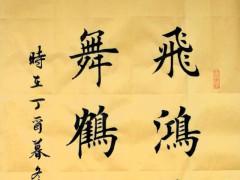 飛鴻
舞鶴
時在丁酉暮冬